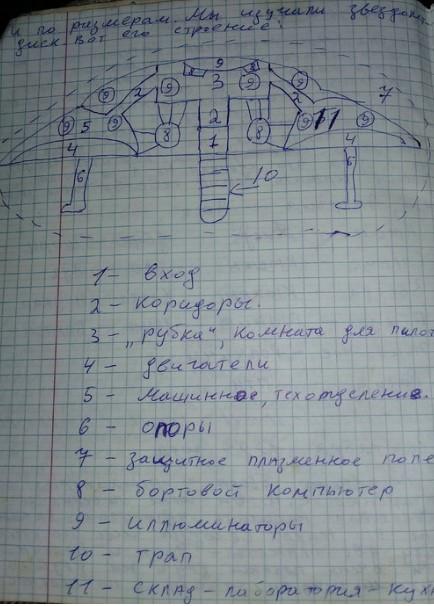 и по размерам. Мы изучали звездолёт
диск вот его строение:
9
9 3 9 9
2 2 7
9 5 9 9 2 8 9 11 9
4 8 1 4
6 10 6
1 – вход
2 – коридоры.
3 – „рубка", комната для пилот
4 – двигатели
5 – Машинное, техотделение.
6 – опоры
7 – защитное плазменное поле
8 – бортовой компьютер
9 – иллюминаторы
10 – трап
11 – склад – лаборатория – кух